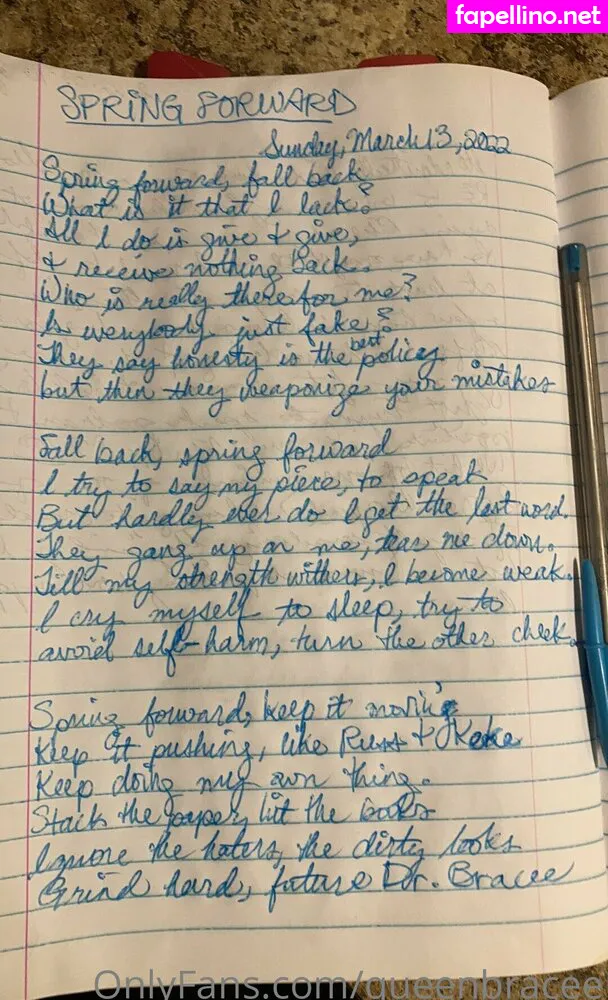 fapellino.net
SPRING FORWARD
Sunday, March 13, 2022
Spring forward, fall back
What is it that I lack?
All I do is give & give,
& receive nothing back.
Who is really there for me?
Is everybody just fake?
They say honesty is the best policy
but then they weaponize your mistakes
Fall back, spring forward
I try to say my piece, to speak
But hardly ever do I get the last word.
They gang up on me, tear me down.
Till my strength withers, I become weak.
I cry myself to sleep, try to
avoid self-harm, turn the other cheek.
Spring forward, keep it movin'
Keep it pushing, like & Keke
Keep doing my own thing.
Stack the paper, hit the books
Ignore the haters, the dirty looks
Grind hard, future Dr. Bracee
OnlyFans.com/queenbracee